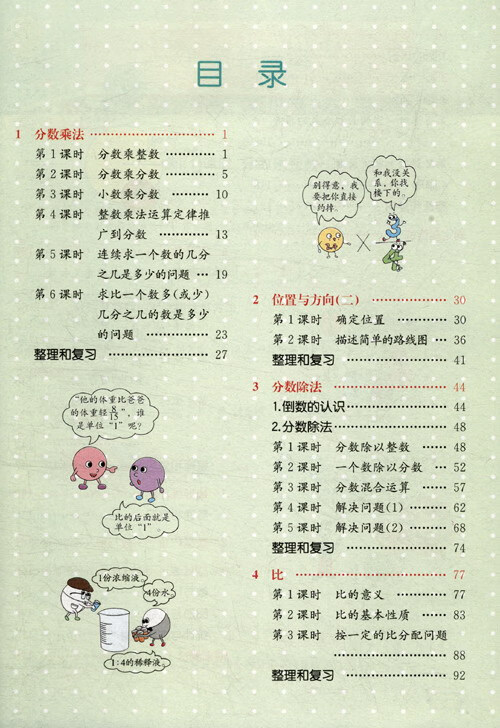 目 录
1 分数乘法 ………………… 1
第1课时 分数乘整数 ………… 1
第2课时 分数乘分数 ………… 5
第3课时 小数乘分数 ……… 10
第4课时 整数乘法运算定律推
广到分数 ………… 13
第5课时 连续求一个数的几分
之几是多少的问题 … 19
第6课时 求比一个数多(或少)
几分之几的数是多少
的问题 ………… 23
整理和复习 ……………… 27
“他的体重比爸爸
的体重轻8/15”,谁
是单位“1”呢?
比的后面就是
单位“1”
1份浓缩液。
4份水。
1:4的稀释液。
别得意,我
要把你直接
约掉。
和我没关
系,你找
楼下的。
× 3
4
2 位置与方向(二) ………… 30
第1课时 确定位置 ………… 30
第2课时 描述简单的路线图 … 36
整理和复习 ……………… 41
3 分数除法 ……………… 44
1.倒数的认识 ……………… 44
2.分数除法 ……………… 48
第1课时 分数除以整数 …… 48
第2课时 一个数除以分数 … 52
第3课时 分数混合运算 …… 57
第4课时 解决问题(1) …… 62
第5课时 解决问题(2) …… 68
整理和复习 ……………… 74
4 比 ……………………… 77
第1课时 比的意义 ………… 77
第2课时 比的基本性质 …… 83
第3课时 按一定的比分配问题
……………… 88
整理和复习 ……………… 92